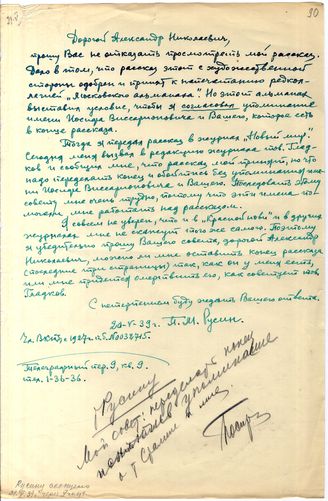 90
Дорогой Александр Николаевич,
прошу Вас не отказать просмотреть мой рассказ.
Дело в том, что рассказ этот с художественной
стороны одобрен и принят к напечатанию редкол-
легией „Московского альманаха". Но этот альманах
выставил условие, чтобы я согласовал упоминание
имени Иосифа Виссарионовича и Вашего, которое есть
в конце рассказа.
Тогда я передал рассказ в журнал „Новый мир".
Сегодня меня вызвал в редакцию журнала тов. Глад-
ков и сообщил мне, что рассказ мой принят, но что
надо переделать конец и обойтись без упоминания име-
ни Иосифа Виссарионовича и Вашего. Последовать этому
совету мне очень трудно, потому что эти имена по-
могали мне работать над рассказом.
Я совсем не уверен, что и в „Красной нови" и в других
журналах мне не скажут того же самого. Поэтому
я убедительно прошу Вашего совета, дорогой Александр
Николаевич, можно ли мне оставить конец рассказа
(последние три страницы) так, как он у меня есть,
или мне придется омертвить его, как советует тов.
Гладков.
С нетерпением буду ждать Вашего ответа.
20-V-39 г. П. М. Русин.
Чл. ВКП(б) с 1927 г. п.б. № 0032715.
Телеграфный пер. 9, кв. 9.
тел. 1-36-36.
Русину
Мой совет: переделать конец
упоминание
о т. Сталине и мне.